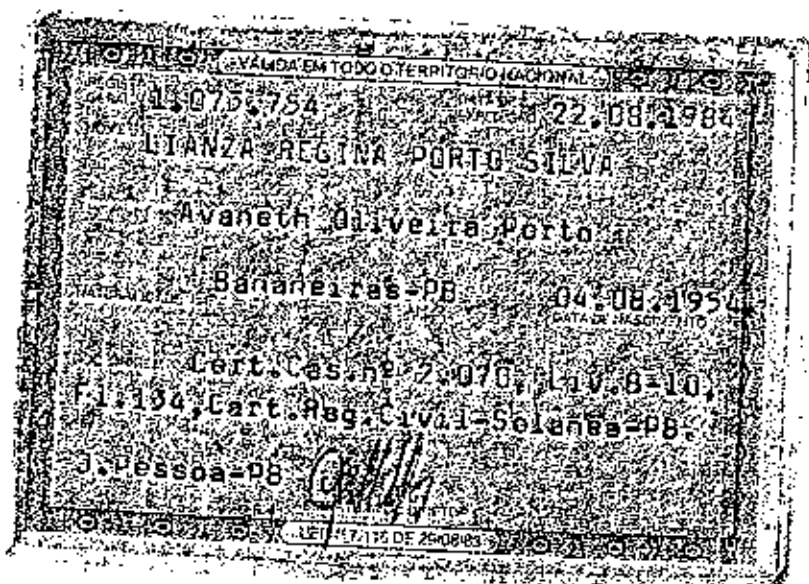 VÁLIDA EM TODO O TERRITÓRIO NACIONAL
1.076.754 22.08.1984
LIANZA REGINA PORTO SILVA
Avaneth Oliveira Porto
Bananeiras-PB 04.08.1954
DATA DE NASCIMENTO
Cert.Cas.nº 2.070, Liv.B-10,
Fl.134,Cart.Reg.Civil-Solânea-PB.
J.Pessoa-PB
LEI Nº 7.116 DE 29/08/83